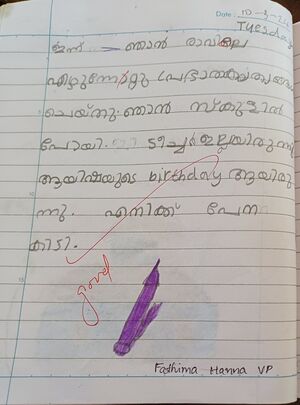 Date: 10-3-26
Tuesday
ഇന്ന് ഞാൻ രാവിലെ
എഴുന്നേറ്റു
ചെയ്തു. ഞാൻ സ്കൂളിൽ
പോയി. ടീച്ചർ ഇല്ലയിരുന്നു
ആയിഷയുടെ birthday ആയിരു
ന്നു. എനിക്ക് പേന
കിടി.
good
Fathima Hanna VP